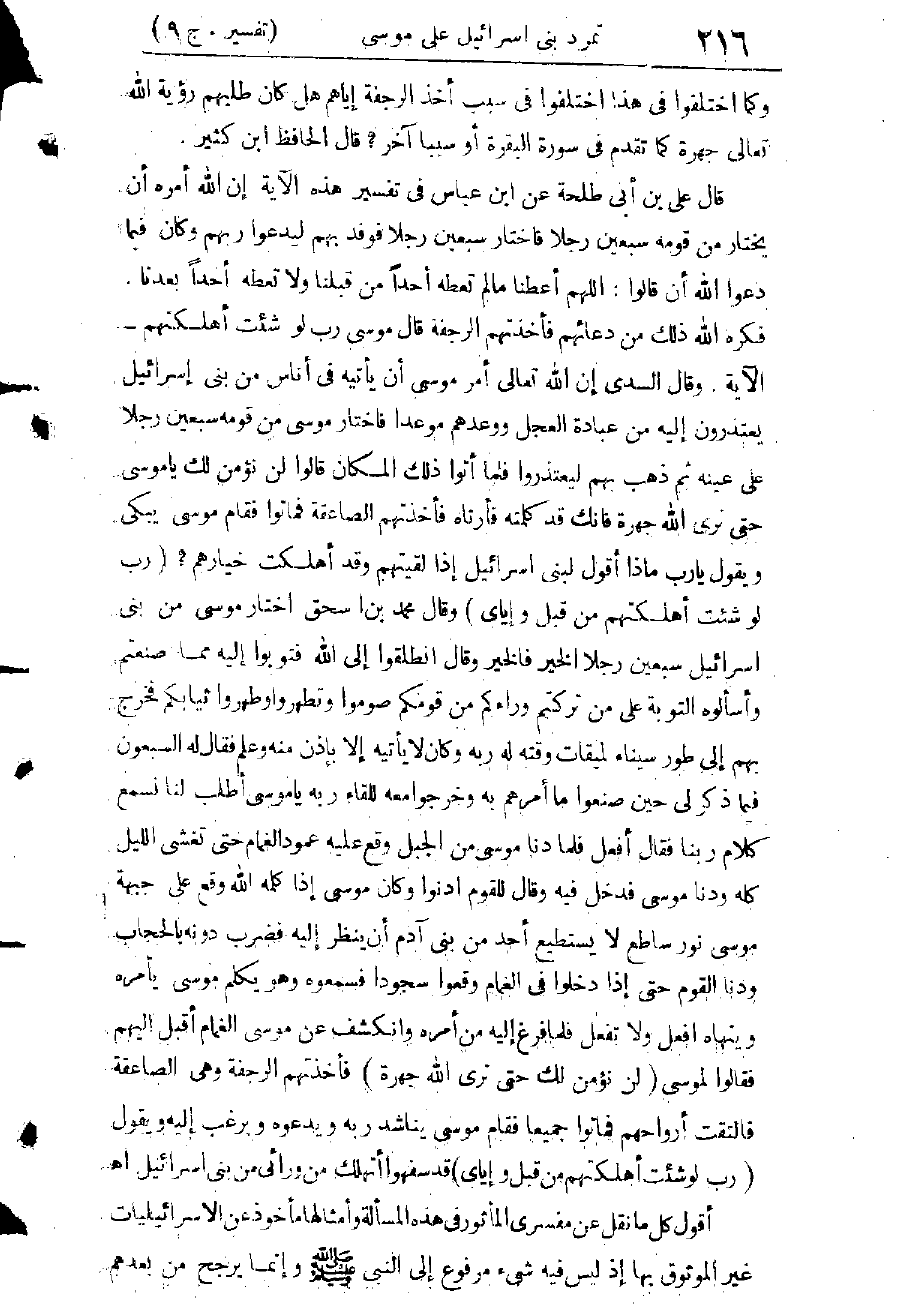 ٢١٦ تمرد بنى اسرائيل على موسى (تفسير . ج ٩)
وكما اختلفوا فى هذا اختلفوا فى سبب أخذ الرجفة إياهم هل كان طلبهم رؤية الله
تعالى جهرة كما تقدم فى سورة البقرة أو سببا آخر ? قال الحافظ ابن كثير .
قال على بن أبى طلحة عن ابن عباس فى تفسير هذه الآية إن الله أمره أن
يختار من قومه سبعين رجلا فاختار سبعين رجلا فوفد بهم ليدعوا ربهم وكان فيما
دعوا الله أن قالوا : اللهم أعطنا مالم تعطه أحداً من قبلنا ولا تعطه أحداً بعدنا .
فكره الله ذلك من دعائهم فأخذتهم الرجفة قال موسى رب لو شئت أهلكتهم ـ
الآية . وقال السدى إن الله تعالى أمر موسى أن يأتيه فى أناس من بنى إسرائيل
يعتذرون إليه من عبادة العجل ووعدهم موعدا فاختار موسى من قومه سبعين رجلا
على عينه ثم ذهب بهم ليعتذروا فلما أتوا ذلك المكان قالوا لن نؤمن لك ياموسى
حتى نرى الله جهرة فانك قد كلمته فأرناه فأخذتهم الصاعقة فماتوا فقام موسى يبكى
ويقول يارب ماذا أقول لبنى اسرائيل إذا لقيتهم وقد أهلكت خيارهم ? ( رب
لو شئت أهلكتهم من قبل وإياى ) وقال محمد بن اسحق اختار موسى من بنى
اسرائيل سبعين رجلا الخير فالخير وقال انطلقوا إلى الله فتوبوا إليه مما صنعتم
وأسألوه التوبة على من تركتم وراءكم من قومكم صوموا وتطهروا وطهروا ثيابكم فخرج
بهم إلى طور سيناء لميقات وقته له ربه وكان لا يأتيه إلا بإذن منه وعلم فقال له السبعون
فيما ذكر لى حين صنعوا ما أمرهم به وخرجوا معه للقاء ربه ياموسى أطلب لنا نسمع
كلام ربنا فقال أفعل فلما دنا موسى من الجبل وقع عليه عمود الغمام حتى تغشى الليل
كله ودنا موسى فدخل فيه وقال للقوم ادنوا وكان موسى إذا كلمه الله وقع على جبهة
موسى نور ساطع لا يستطيع أحد من بنى آدم أن ينظر إليه فضرب دونه بالحجاب
ودنا القوم حتى إذا دخلوا فى الغمام وقعوا سجودا فسمعوه وهو يكلم موسى يأمره
وينهاه افعل ولا تفعل فلما فرغ إليه من أمره وانكشف عن موسى الغمام أقبل اليهم
فقالوا لموسى ( لن نؤمن لك حتى نرى الله جهرة ) فأخذتهم الرجفة وهى الصاعقة
فالتقت أرواحهم فماتوا جميعا فقام موسى يناشد ربه ويدعوه ويرغب إليه ويقول
( رب لو شئت أهلكتهم من قبل وإياى ) قد سفهوا أتهلك من ورائى من بنى اسرائيل اهـ
أقول كل ما نقل عن مفسرى المأثور فى هذه المسألة وأمثالها مأخوذ عن الاسرائيليات
غير الموثوق بها إذ ليس فيه شىء مرفوع إلى النبى ﷺ وإنما يرجح من بعدهم